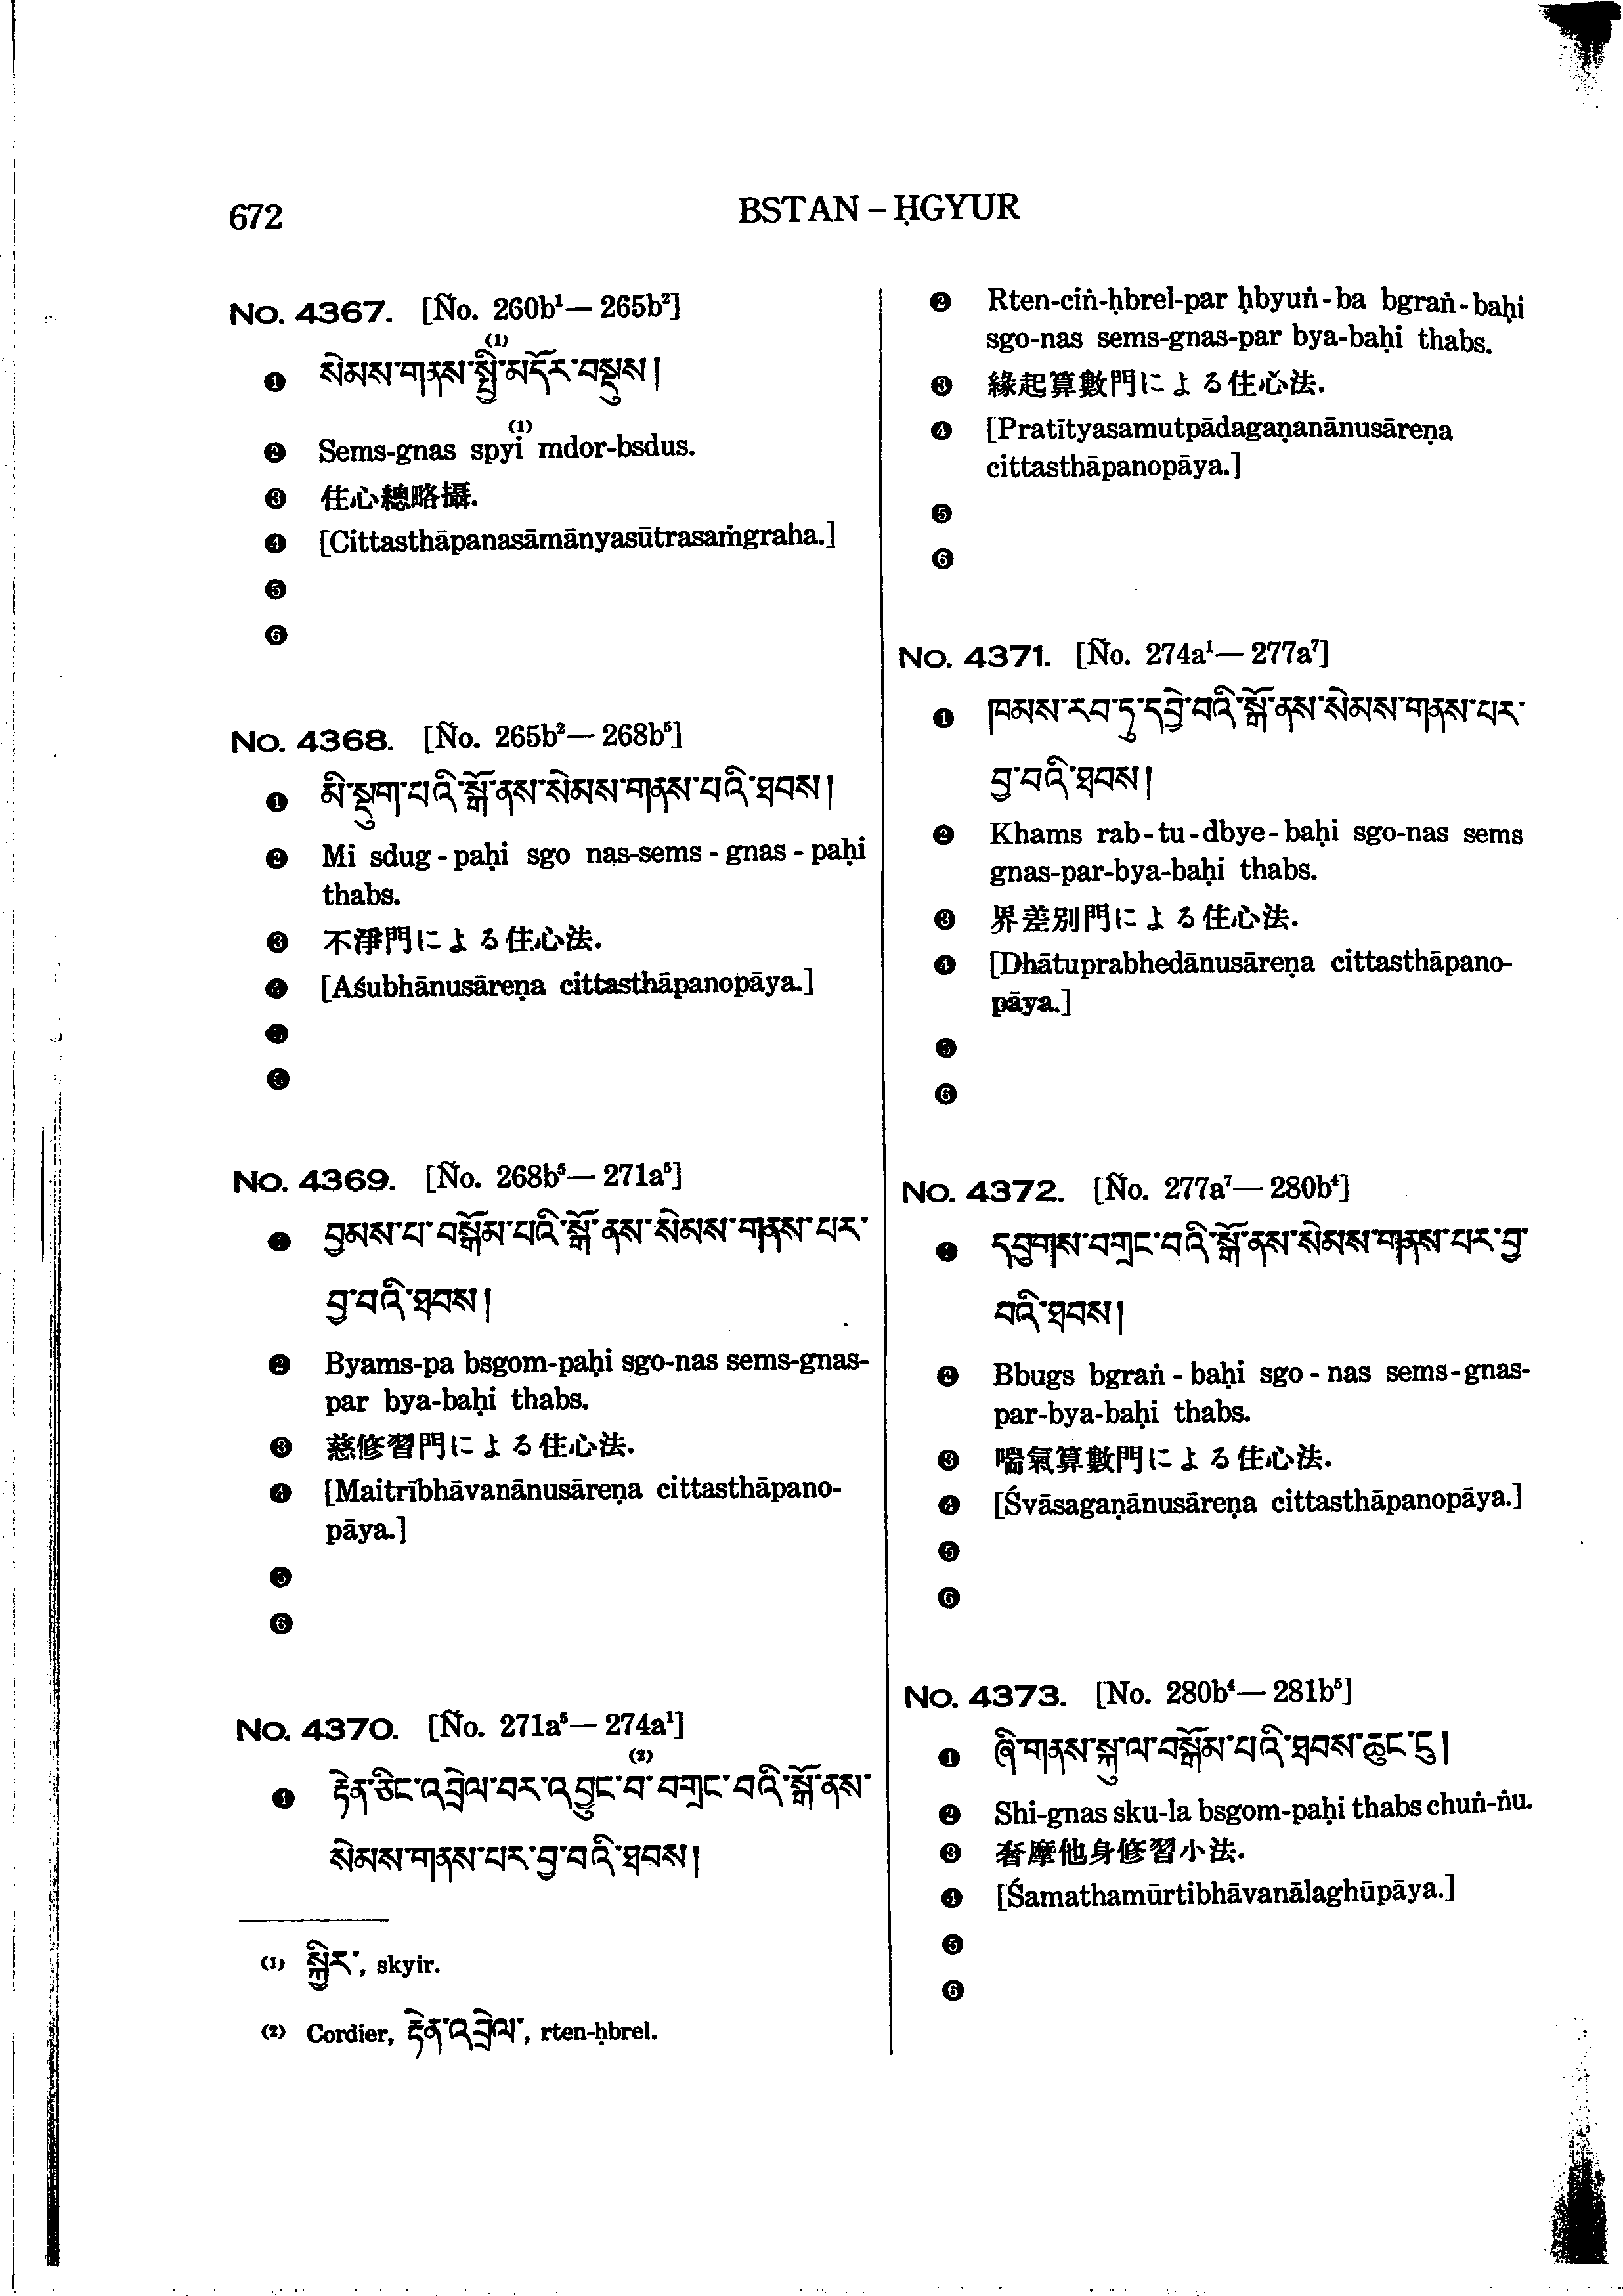 672
BSTAN – ḤGYUR
No. 4367. [Ño. 260b¹— 265b²]
(1)
❶ སེམས་གནས་སྤྱི་མདོར་བསྡུས།
(1)
❷ Sems-gnas spyi mdor-bsdus.
❸ 住心總略攝.
❹ [Cittasthāpanasāmānyasūtrasaṁgraha.]
❺
❻
No. 4368. [Ño. 265b²— 268b⁵]
❶ མི་སྡུག་པའི་སྒོ་ནས་སེམས་གནས་པའི་ཐབས།
❷ Mi sdug - paḥi sgo nas-sems - gnas - paḥi
thabs.
❸ 不淨門による住心法.
❹ [Aśubhānusāreṇa cittasthāpanopāya.]
❺
❻
No. 4369. [Ño. 268b⁵— 271a⁵]
❶ བྱམས་པ་བསྒོམ་པའི་སྒོ་ནས་སེམས་གནས་པར་
བྱ་བའི་ཐབས།
❷ Byams-pa bsgom-paḥi sgo-nas sems-gnas-
par bya-baḥi thabs.
❸ 慈修習門による住心法.
❹ [Maitrībhāvanānusāreṇa cittasthāpano-
pāya.]
❺
❻
No. 4370. [Ño. 271a⁵— 274a¹]
(2)
❶ རྟེན་ཅིང་འབྲེལ་བར་འབྱུང་བ་བགྲང་བའི་སྒོ་ནས་
སེམས་གནས་པར་བྱ་བའི་ཐབས།
(1) སྐྱིར་, skyir.
(2) Cordier, རྟེན་འབྲེལ་, rten-ḥbrel.
❷ Rten-ciṅ-ḥbrel-par ḥbyuṅ-ba bgraṅ-baḥi
sgo-nas sems-gnas-par bya-baḥi thabs.
❸ 緣起算數門による住心法.
❹ [Pratītyasamutpādagaṇanānusāreṇa
cittasthāpanopāya.]
❺
❻
No. 4371. [Ño. 274a¹— 277a⁷]
❶ ཁམས་རབ་ཏུ་དབྱེ་བའི་སྒོ་ནས་སེམས་གནས་པར་
བྱ་བའི་ཐབས།
❷ Khams rab-tu-dbye-baḥi sgo-nas sems
gnas-par-bya-baḥi thabs.
❸ 界差別門による住心法.
❹ [Dhātuprabhedānusāreṇa cittasthāpano-
pāya.]
❺
❻
No. 4372. [Ño. 277a⁷— 280b⁴]
❶ དབུགས་བགྲང་བའི་སྒོ་ནས་སེམས་གནས་པར་བྱ་
བའི་ཐབས།
❷ Bbugs bgraṅ - baḥi sgo - nas sems-gnas-
par-bya-baḥi thabs.
❸ 喘氣算數門による住心法.
❹ [Śvāsagaṇānusāreṇa cittasthāpanopāya.]
❺
❻
No. 4373. [No. 280b⁴— 281b⁵]
❶ ཞི་གནས་སྐུ་ལ་བསྒོམ་པའི་ཐབས་ཆུང་ངུ།
❷ Shi-gnas sku-la bsgom-paḥi thabs chuṅ-ṅu.
❸ 奢摩他身修習小法.
❹ [Śamathamūrtibhāvanālaghūpāya.]
❺
❻